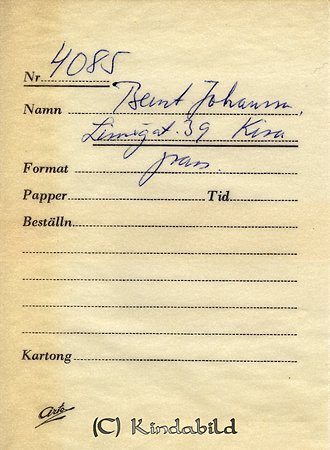 Nr 4085
Namn Bernt Johansson,
Linnégat. 39 Kisa
Format pass
Papper Tid
Beställn
Kartong
Arto
(C) Kindabild